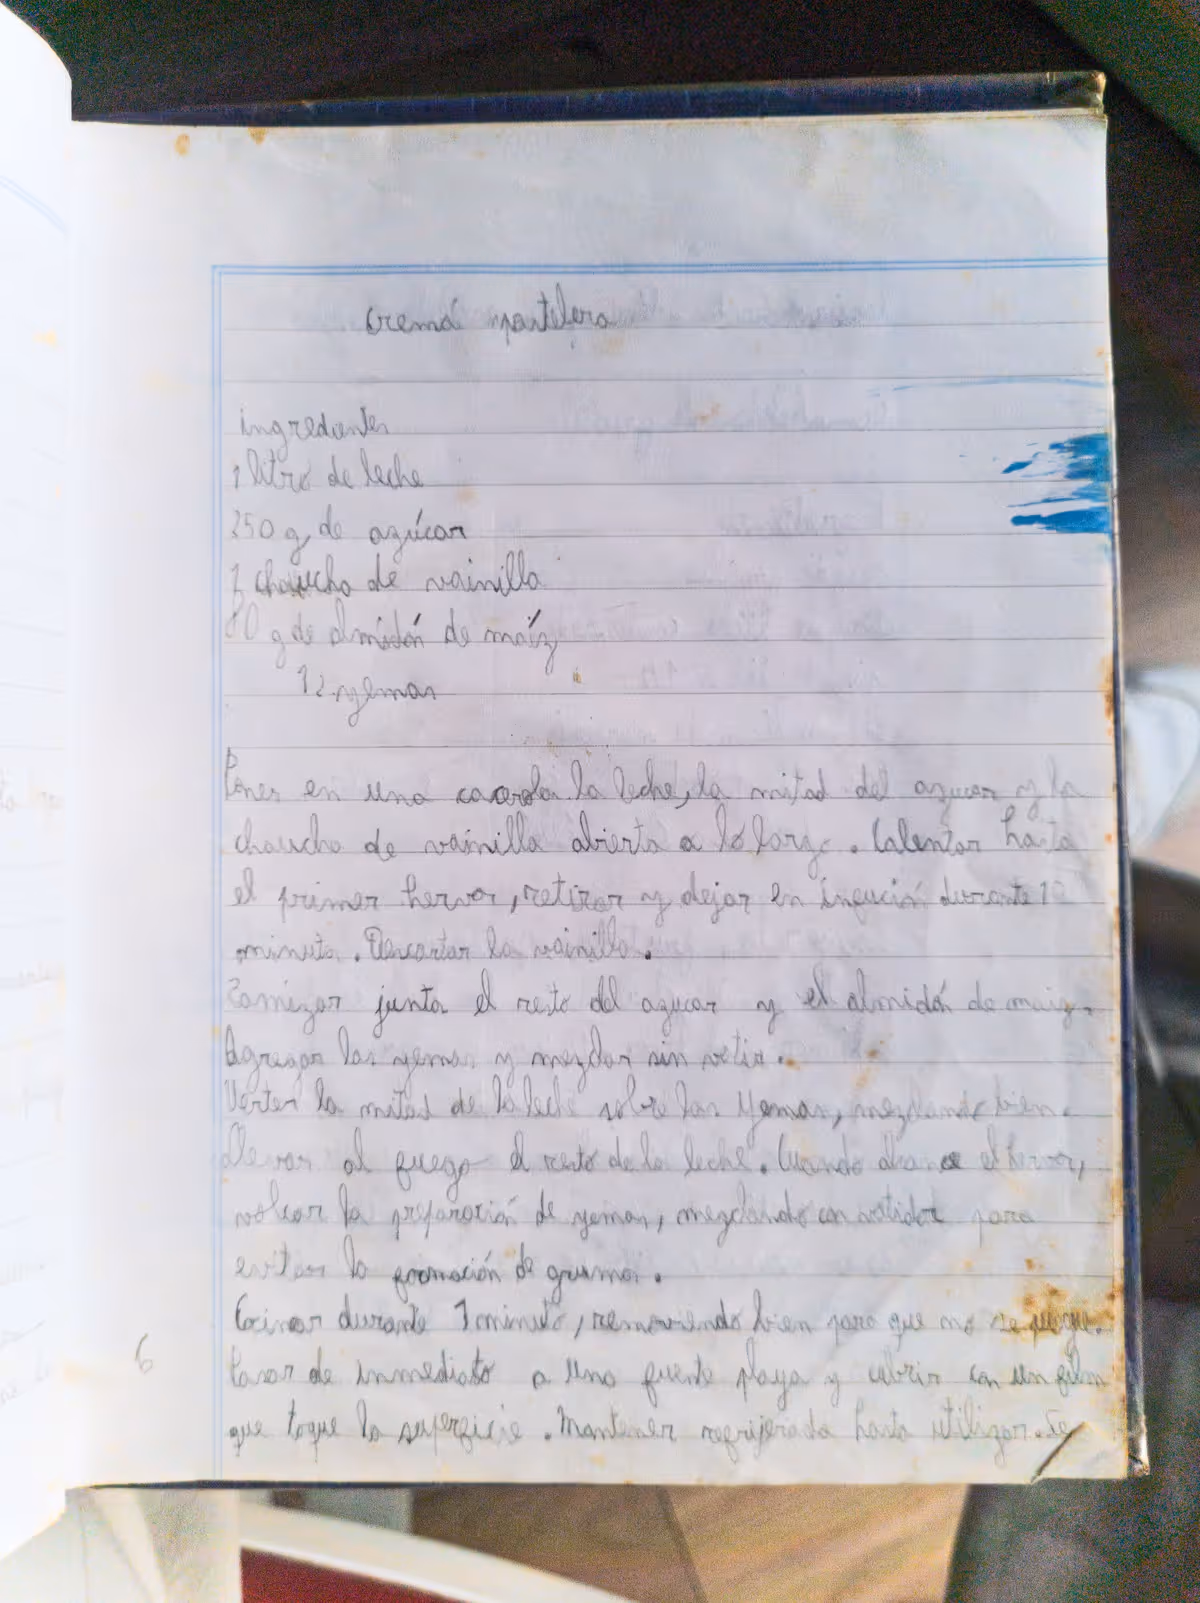 crema pastelera
ingredientes
1 litro de leche
250 g de azúcar
1 chaucha de vainilla
80 g de almidón de maíz
12 yemas
Poner en una cacerola la leche, la mitad del azucar y la
chaucha de vainilla abierta a lo largo. Calentar hasta
el primer hervor, retirar y dejar en infución durante 10
minutos. Descartar la vainilla.
Tamizar junta el resto del azucar y el almidón de maiz.
Agregar las yemas y mezclar sin vatir.
Verter la mitad de la leche sobre las yemas, mezclando bien.
Llevar al fuego el resto de la leche. Cuando alcance el hervor,
volcar la preparación de yemas, mezclando con vatidor para
evitar la formación de grumos.
Cocinar durante 1 minuto, removiendo bien para que no se pegue.
Pasar de inmediato a una fuente playa y cubrir con un film
que toque la superficie. Mantener refrijerada hasta utilizar. Se
6